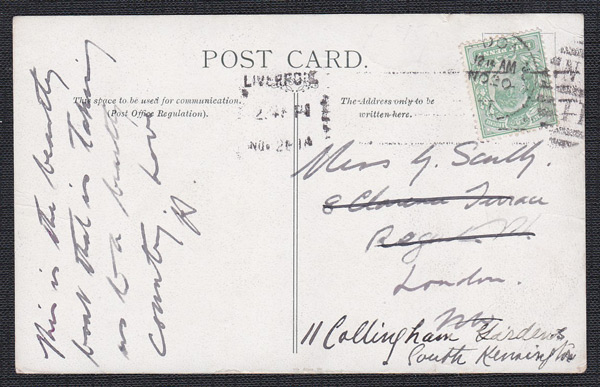 POST CARD.
This space to be used for communication.
(Post Office Regulation).
The Address only to be
written here.
LIVERPOOL
NOV 20
12.15 AM
NO 20
This is the beastly
boat that is taking
us to a beastly
country. Love
Miss G. Scully.
8 Clarence Terrace
London.
11 Collingham Gardens
South Kensington